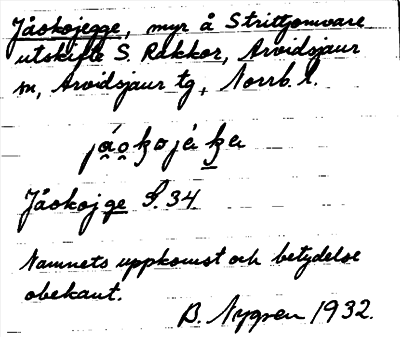 Jåokojegge, myr å Strittjomvare
utskifte S. Rakkor, Arvidsjaur
sn, Arvidsjaur tg, Norrb. l.
Jåokojge S. 34
Namnets uppkomst och betydelse
obekant.
B. Nygren 1932.